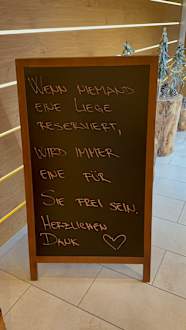 WENN NIEMAND
EINE LIEGE
RESERVIERT,
WIRD IMMER
EINE FÜR
SIE FREI SEIN.
HERZLICHEN
DANK ♡